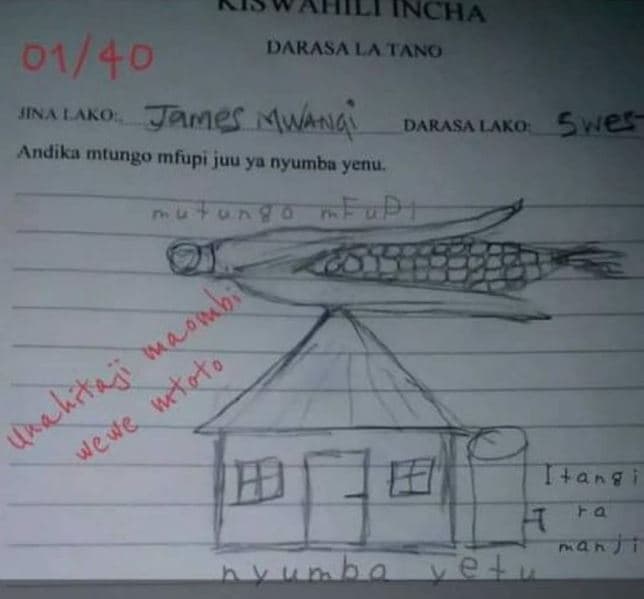 KISWAHILI INCHA
01/40
DARASA LA TANO
JINA LAKO: James MWANGi DARASA LAKO: 5 wes
Andika mtungo mfupi juu ya nyumba yenu.
mutungo mFuPi
unahitaji maombi
wewe mtoto
Itangi
ra
manji
nyumba yetu